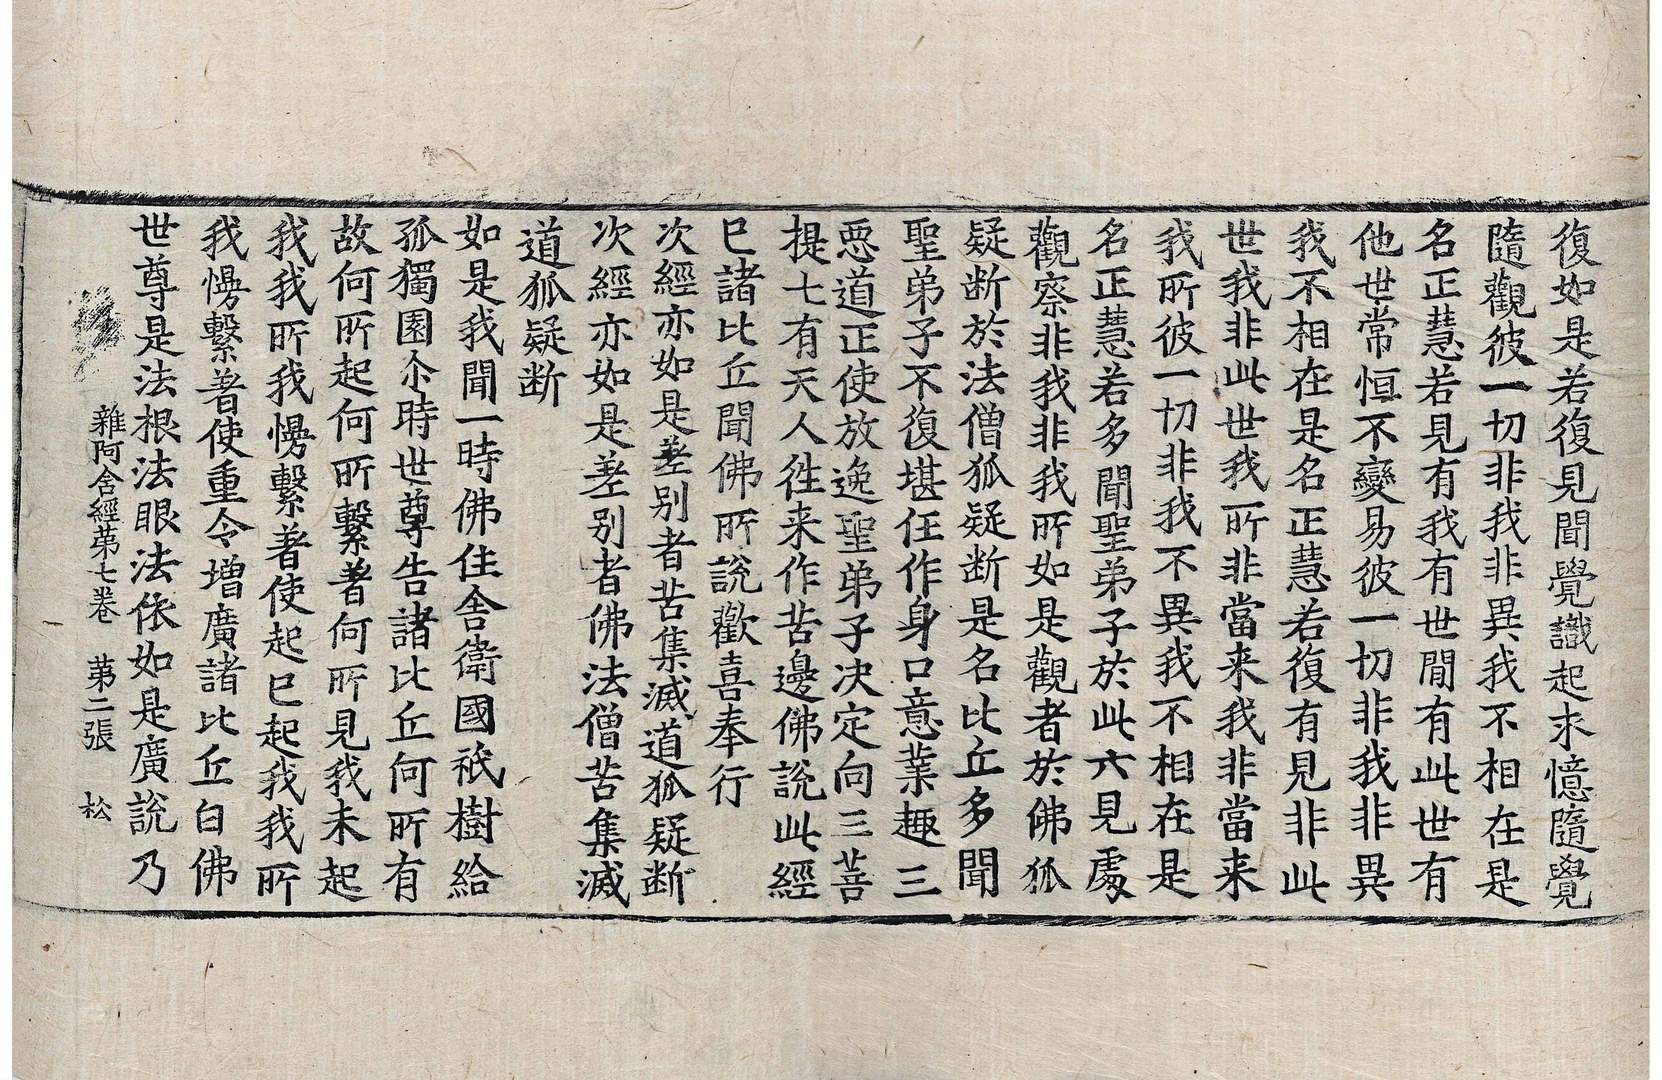 復如是若復見聞覺識起求憶隨覺
隨觀彼一切非我非異我不相在是
名正慧若見有我有世間有此世有
他世常恒不變易彼一切非我非異
我不相在是名正慧若復有見非此
世我非此世我所非當来我非當来
我所彼一切非我不異我不相在是
名正慧若多聞聖弟子於此六見處
觀察非我非我所如是觀者於佛狐
疑断於法僧狐疑断是名比丘多聞
聖弟子不復堪任作身口意業趣三
惡道正使放逸聖弟子决定向三菩
提七有天人往来作苦邊佛說此經
已諸比丘聞佛所說歡喜奉行
次經亦如是差别者苦集滅道狐疑断
次經亦如是差别者佛法僧苦集滅
道狐疑断
如是我聞一時佛住舍衛國祇樹給
孤獨園尒時世尊告諸比丘何所有
故何所起何所繫著何所見我未起
我我所我慢繫著使起已起我我所
我慢繫著使重令增廣諸比丘白佛
世尊是法根法眼法依如是廣說乃
雜阿含經第七卷 第二張 松